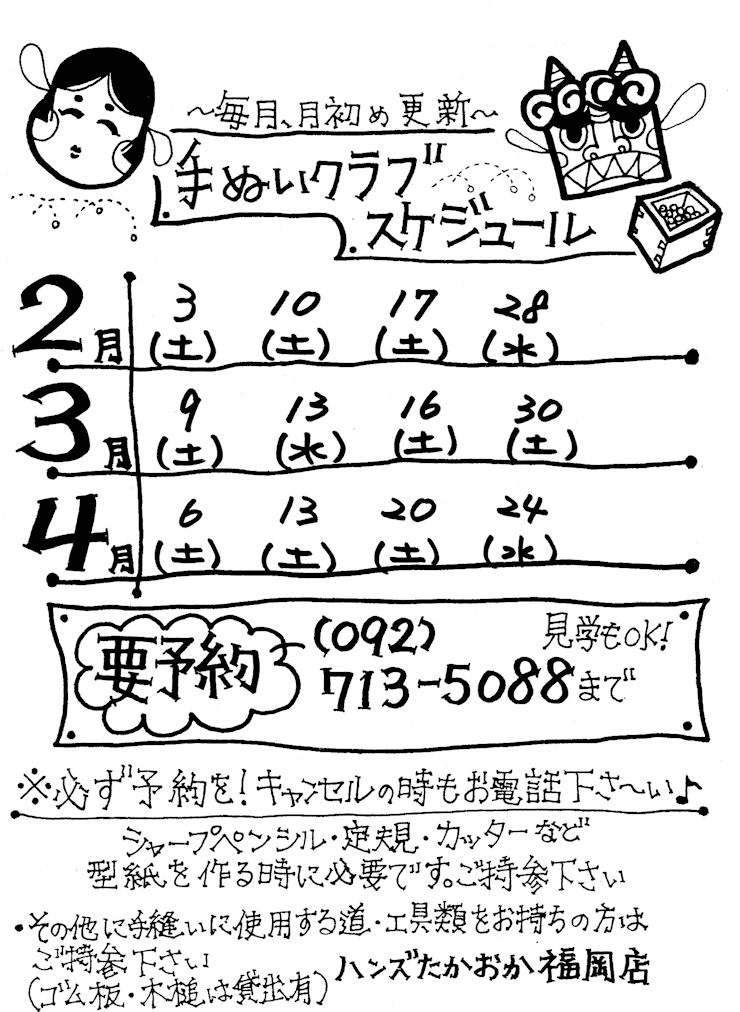 ～毎月、月初め更新～
手ぬいクラブ
スケジュール
2月 3(土) 10(土) 17(土) 28(水)
3月 9(土) 13(水) 16(土) 30(土)
4月 6(土) 13(土) 20(土) 24(水)
要予約 (092) 見学もOK!
713-5088まで
※必ず予約を!キャンセルの時もお電話下さ～い♪
シャープペンシル・定規・カッターなど
型紙を作る時に必要です。ご持参下さい
・その他に手縫いに使用する道・工具類をお持ちの方は
ご持参下さい
(ゴム板・木槌は貸出有) ハンズたかおか福岡店